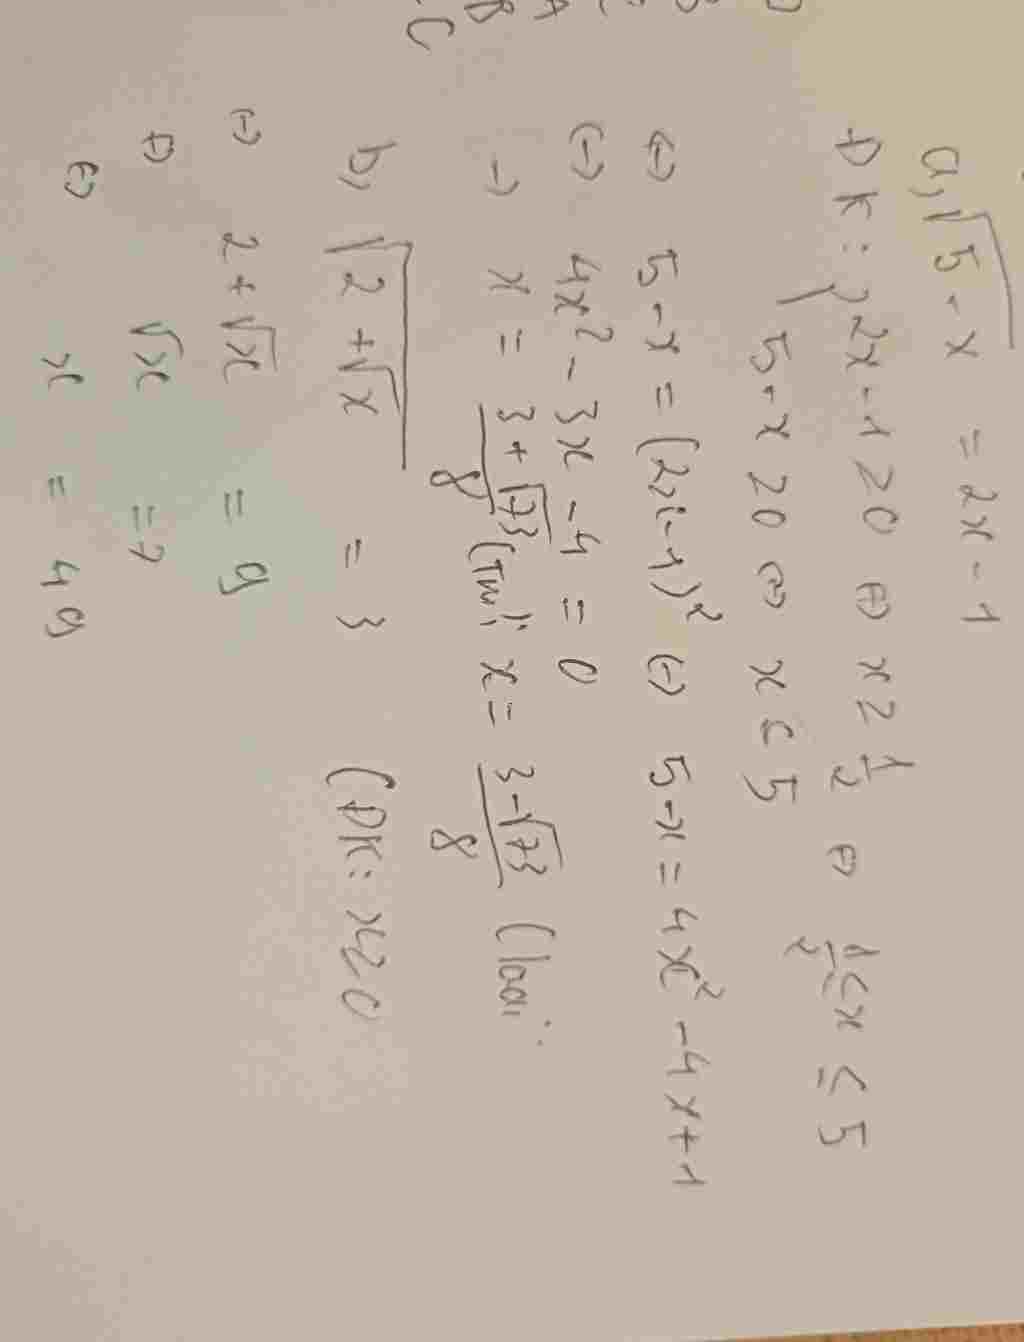 a, √(5-x) = 2x - 1
ĐK: { 2x-1 ≥ 0 (=) x ≥ 1/2 (=) 1/2 ≤ x ≤ 5
5-x ≥ 0 (=) x ≤ 5
(=) 5-x = (2x-1)² (=) 5-x = 4x² - 4x + 1
(=) 4x² - 3x - 4 = 0
-) x = (3+√73)/8 (TM); x = (3-√73)/8 (loại
b, √(2+√x) = 3 (ĐK: x ≥ 0
(=) 2+√x = 9
(=) √x = 7
(=) x = 49